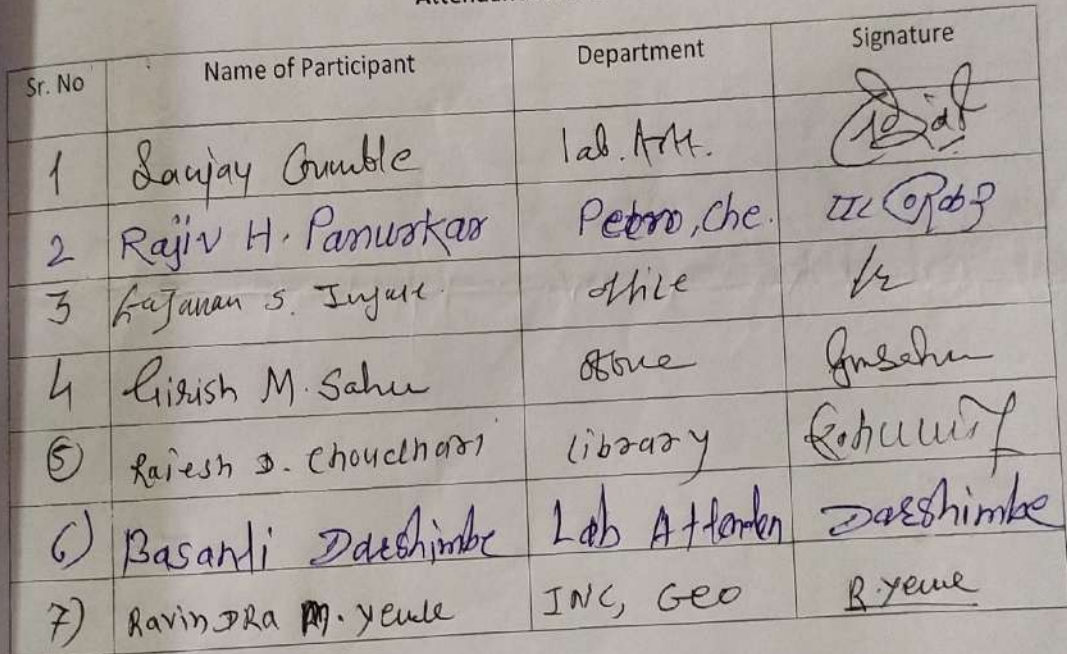 Sr. No Name of Participant Department Signature
1 Sanjay Gumble lab. Att.
2 Rajiv H. Panurkar Petro, Che.
3 Gajanan S. Ingale office
4 Girish M. Sahu Gmsahu
5) Rajesh D. Choudhari library
6) Basanti Darshimbe Lab Attenden Darshimbe
7) RavinDRa M. Yeule INC, Geo R.Yeule